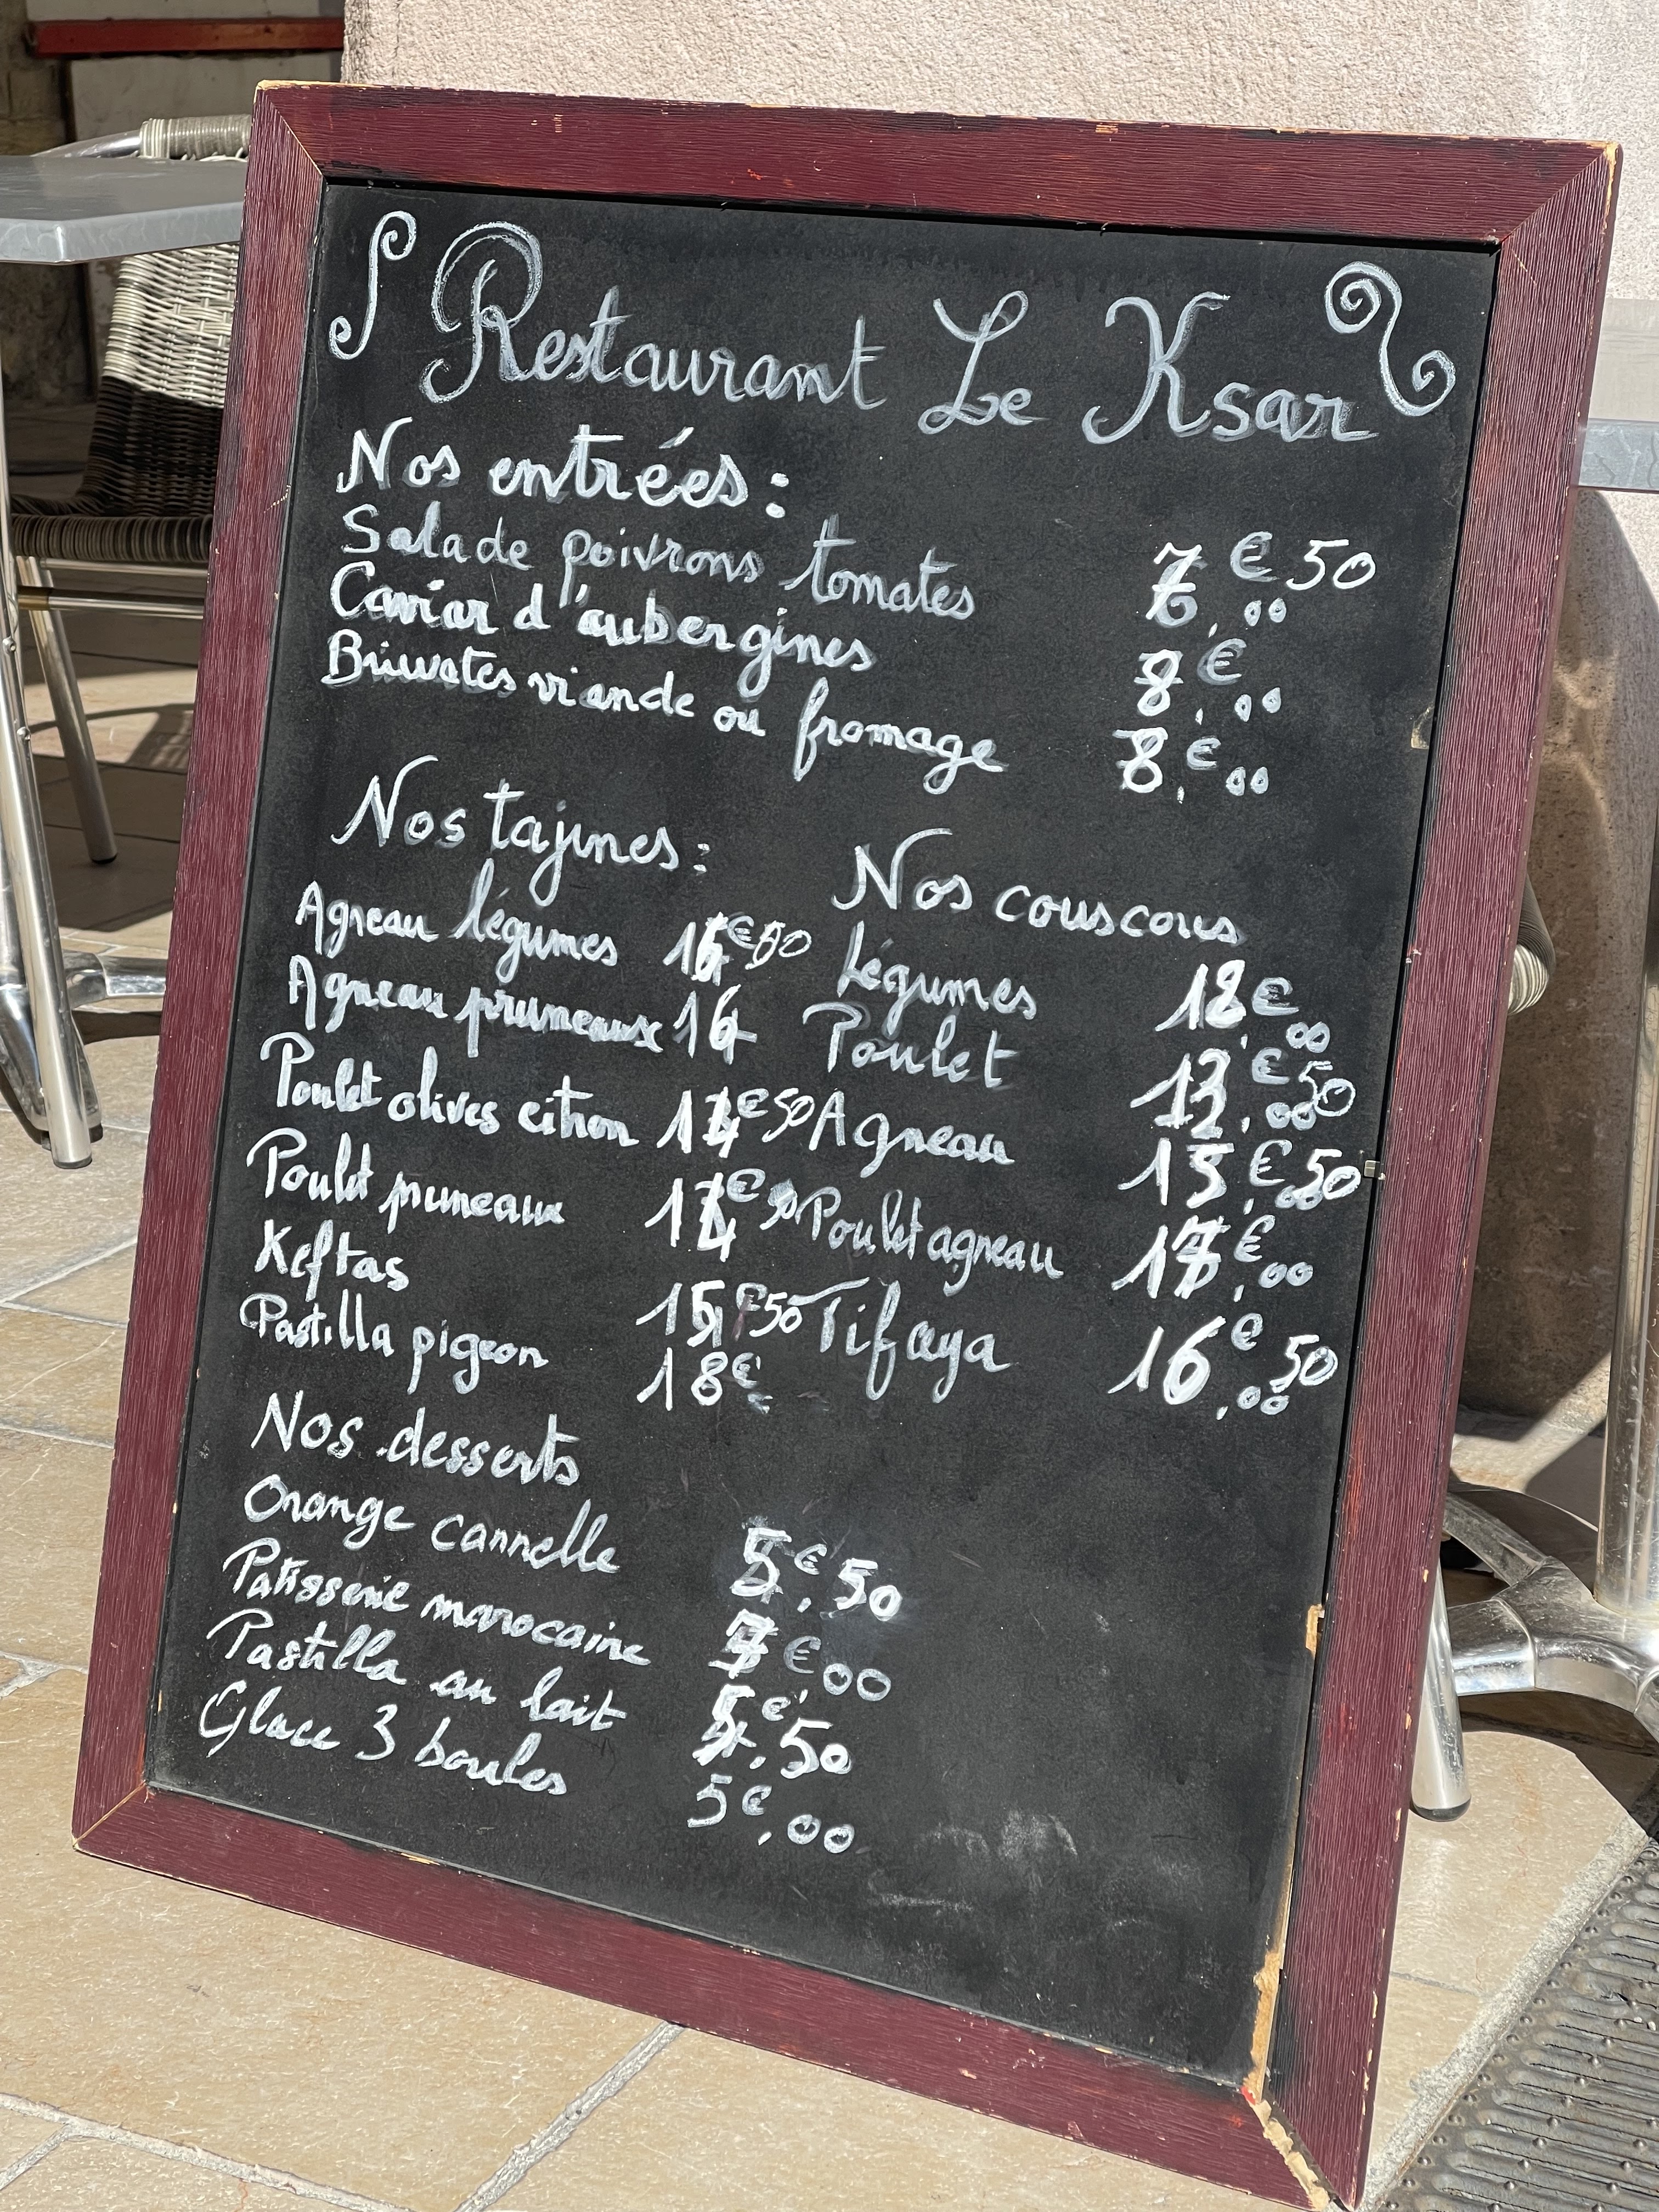 Restaurant Le Ksar
Nos entrées :
Salade poivrons tomates 7€50
Caviar d'aubergines 8€,00
Briwates viande ou fromage 8€,00
Nos tajines :
Agneau légumes
Agneau pruneaux
Poulet olives citron
Poulet pruneaux
Keftas 15€50
Pastilla pigeon 18€
Nos couscous
Légumes
Poulet
Agneau 15€50
Poulet agneau
Tifaya 16€50
Nos desserts
Orange cannelle 5€,50
Patisserie marocaine
Pastilla au lait 5€,50
Glace 3 boules 5€,00